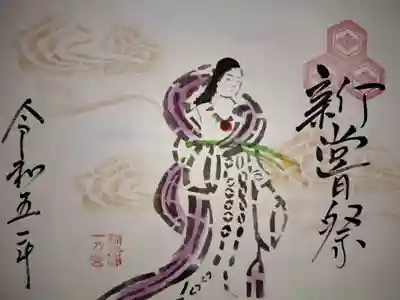 新嘗祭
令和五年